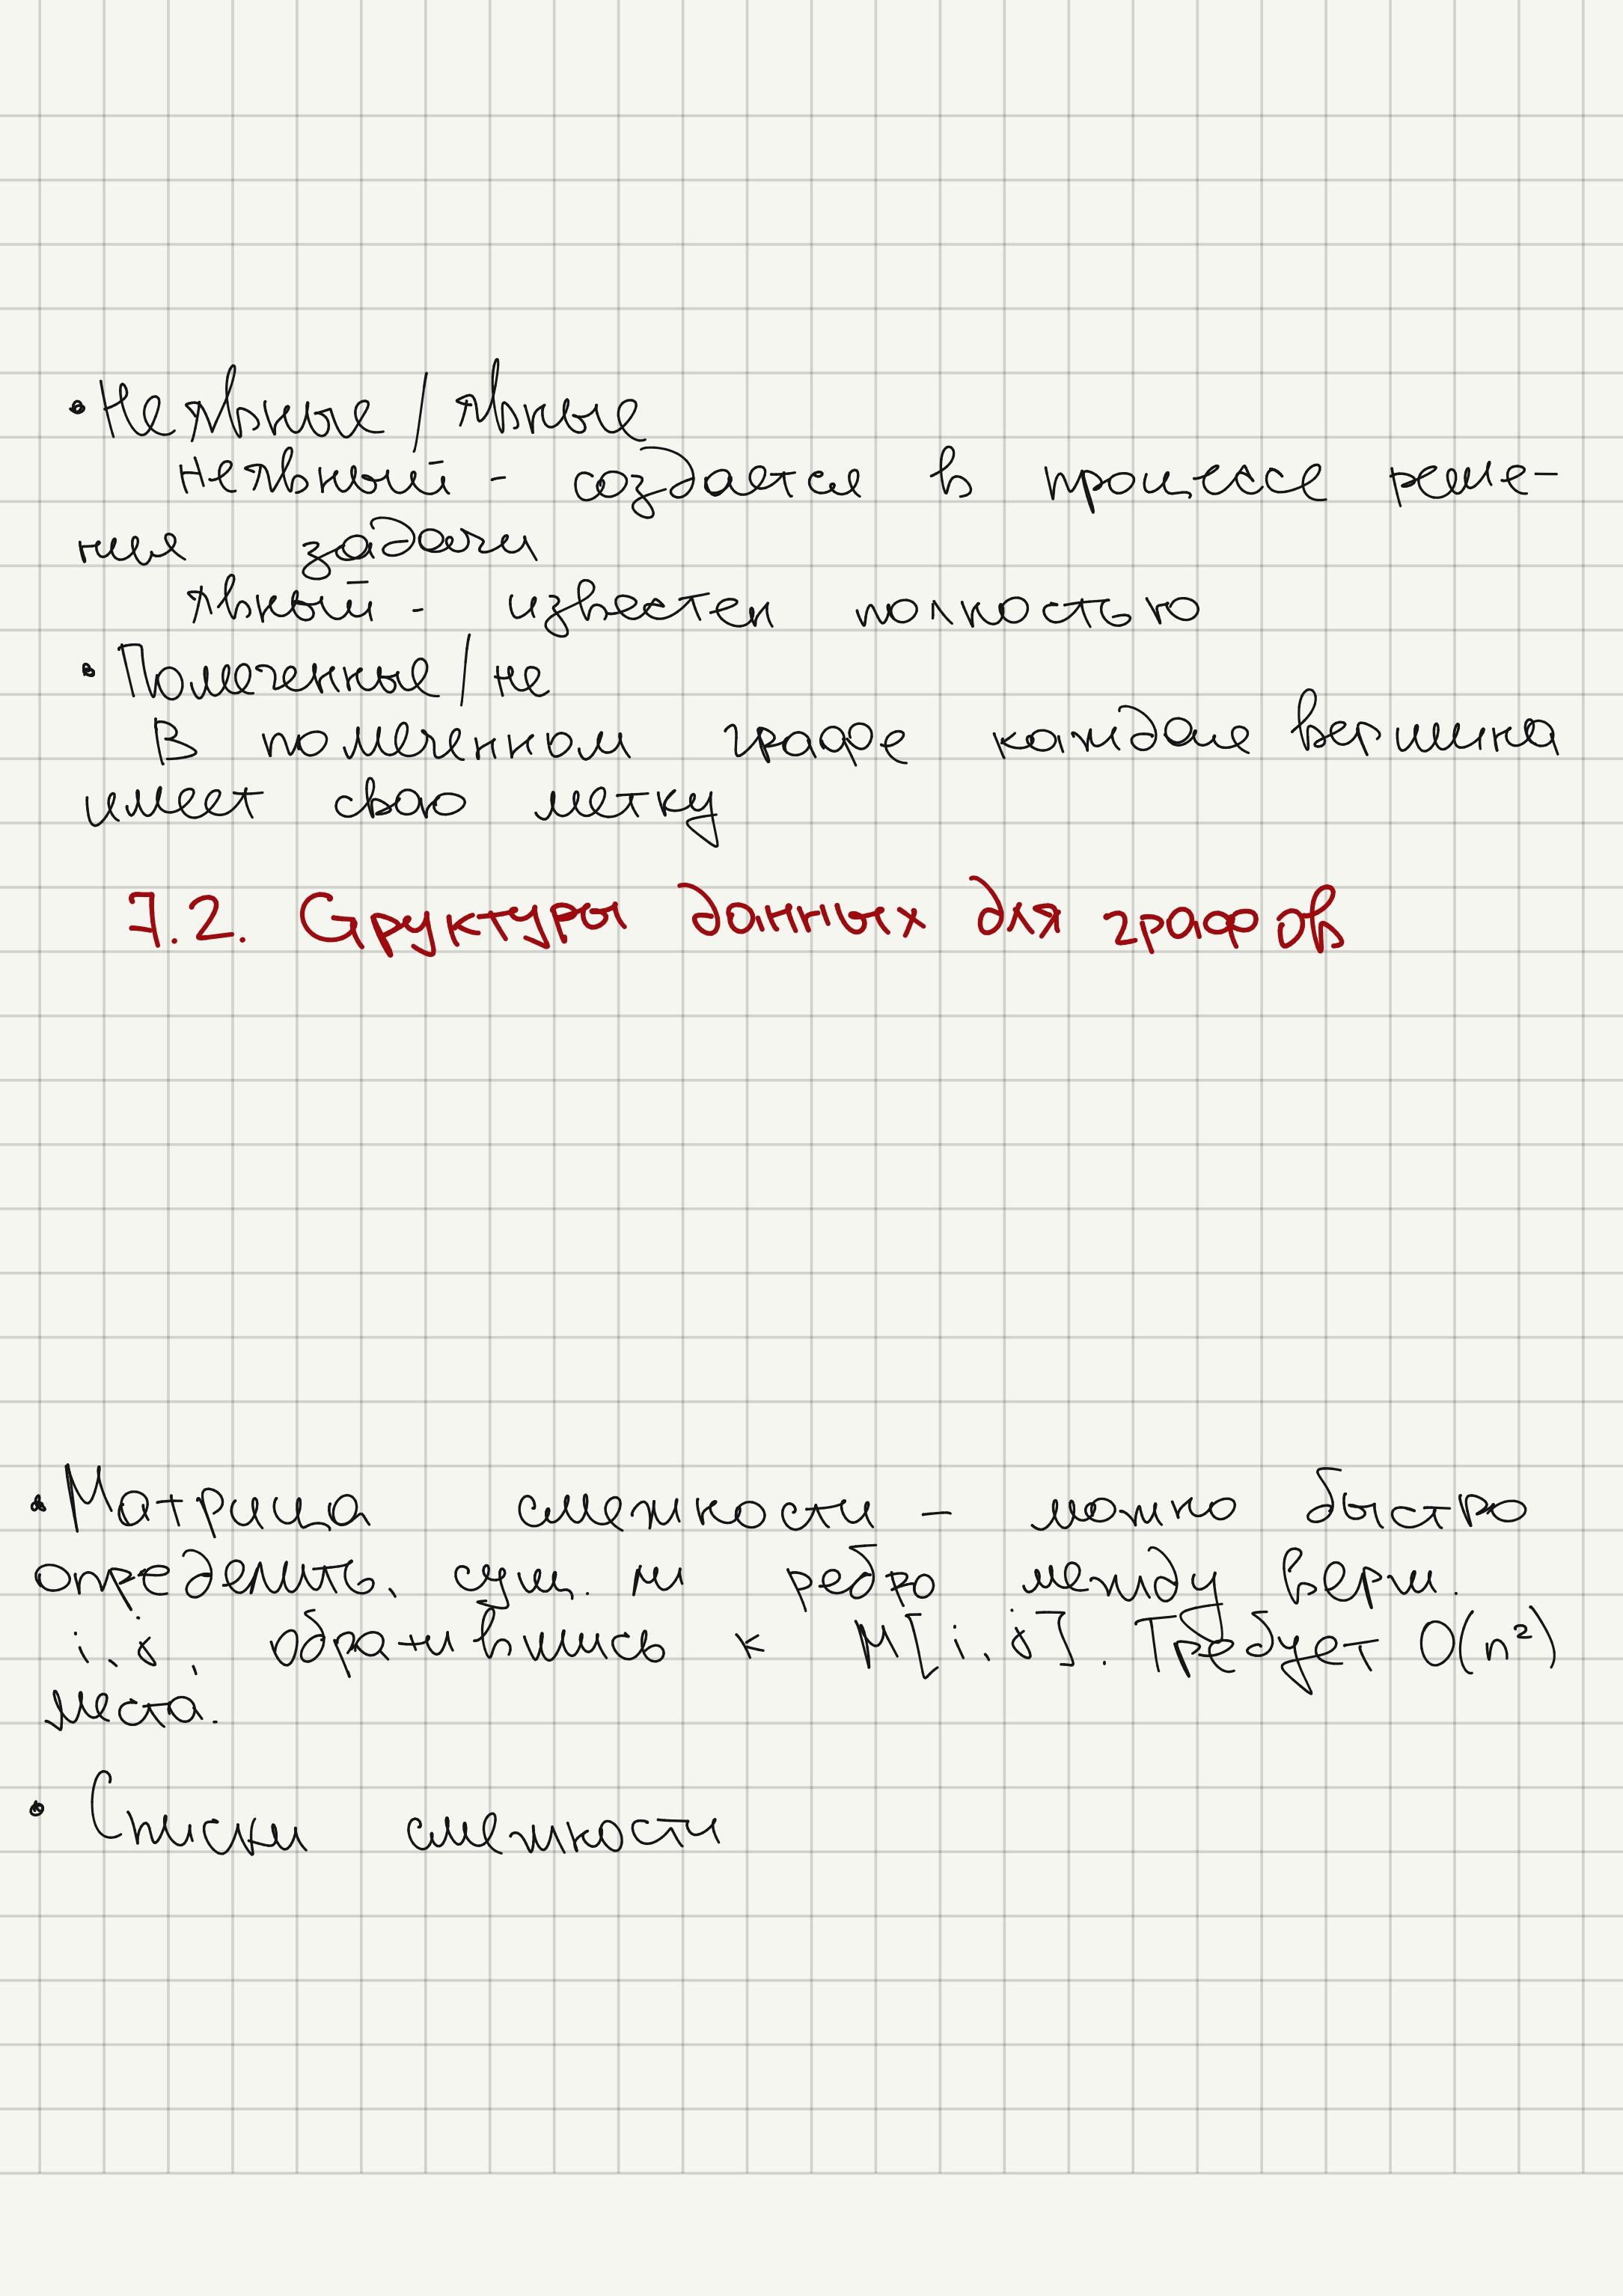 • Неявные / явные
неявный - создается в процессе реше-
ния задачи
явный - известен полностью
• Помеченные / не
В помеченном графе каждая вершина
имеет свою метку
7.2. Cруктуры данных для графов
• Матрица смежности - можно быстро
определить, сущ. ли ребро между верш.
i, j, обратившись к M[i, j]. Требует O(n²)
места.
• Списки смежности